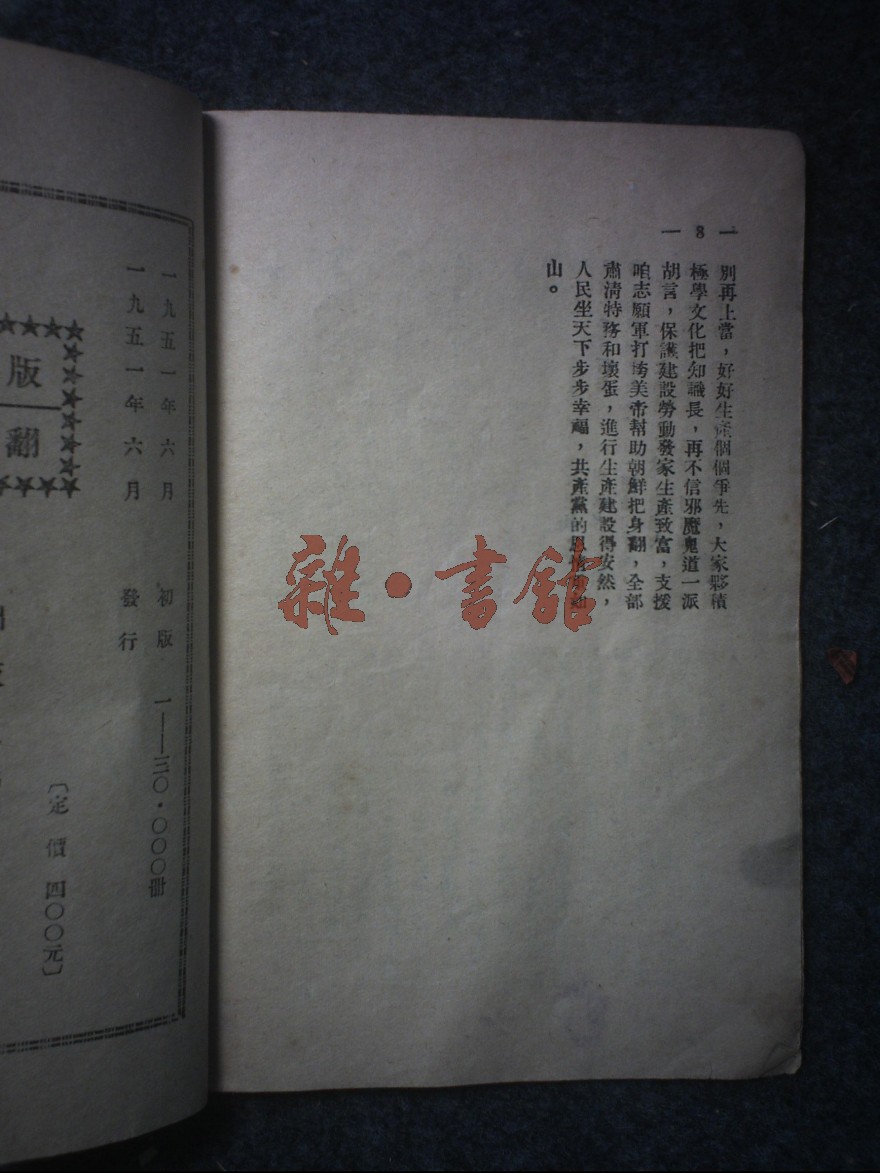 一 8 一
別再上當，好好生產個個爭先，大家夥積
極學文化把知識長，再不信邪魔鬼道一派
胡言，保護建設勞動發家生產致富，支援
咱志願軍打垮美帝幫助朝鮮把身翻，全部
肅清特務和壞蛋，進行生產建設得安然，
人民坐天下步步幸福，共產黨的恩情
山。
雜·書館
一九五一年六月 初版 一——三〇·〇〇〇冊
一九五一年六月 發行
〔定價 四〇〇元〕
版
翻